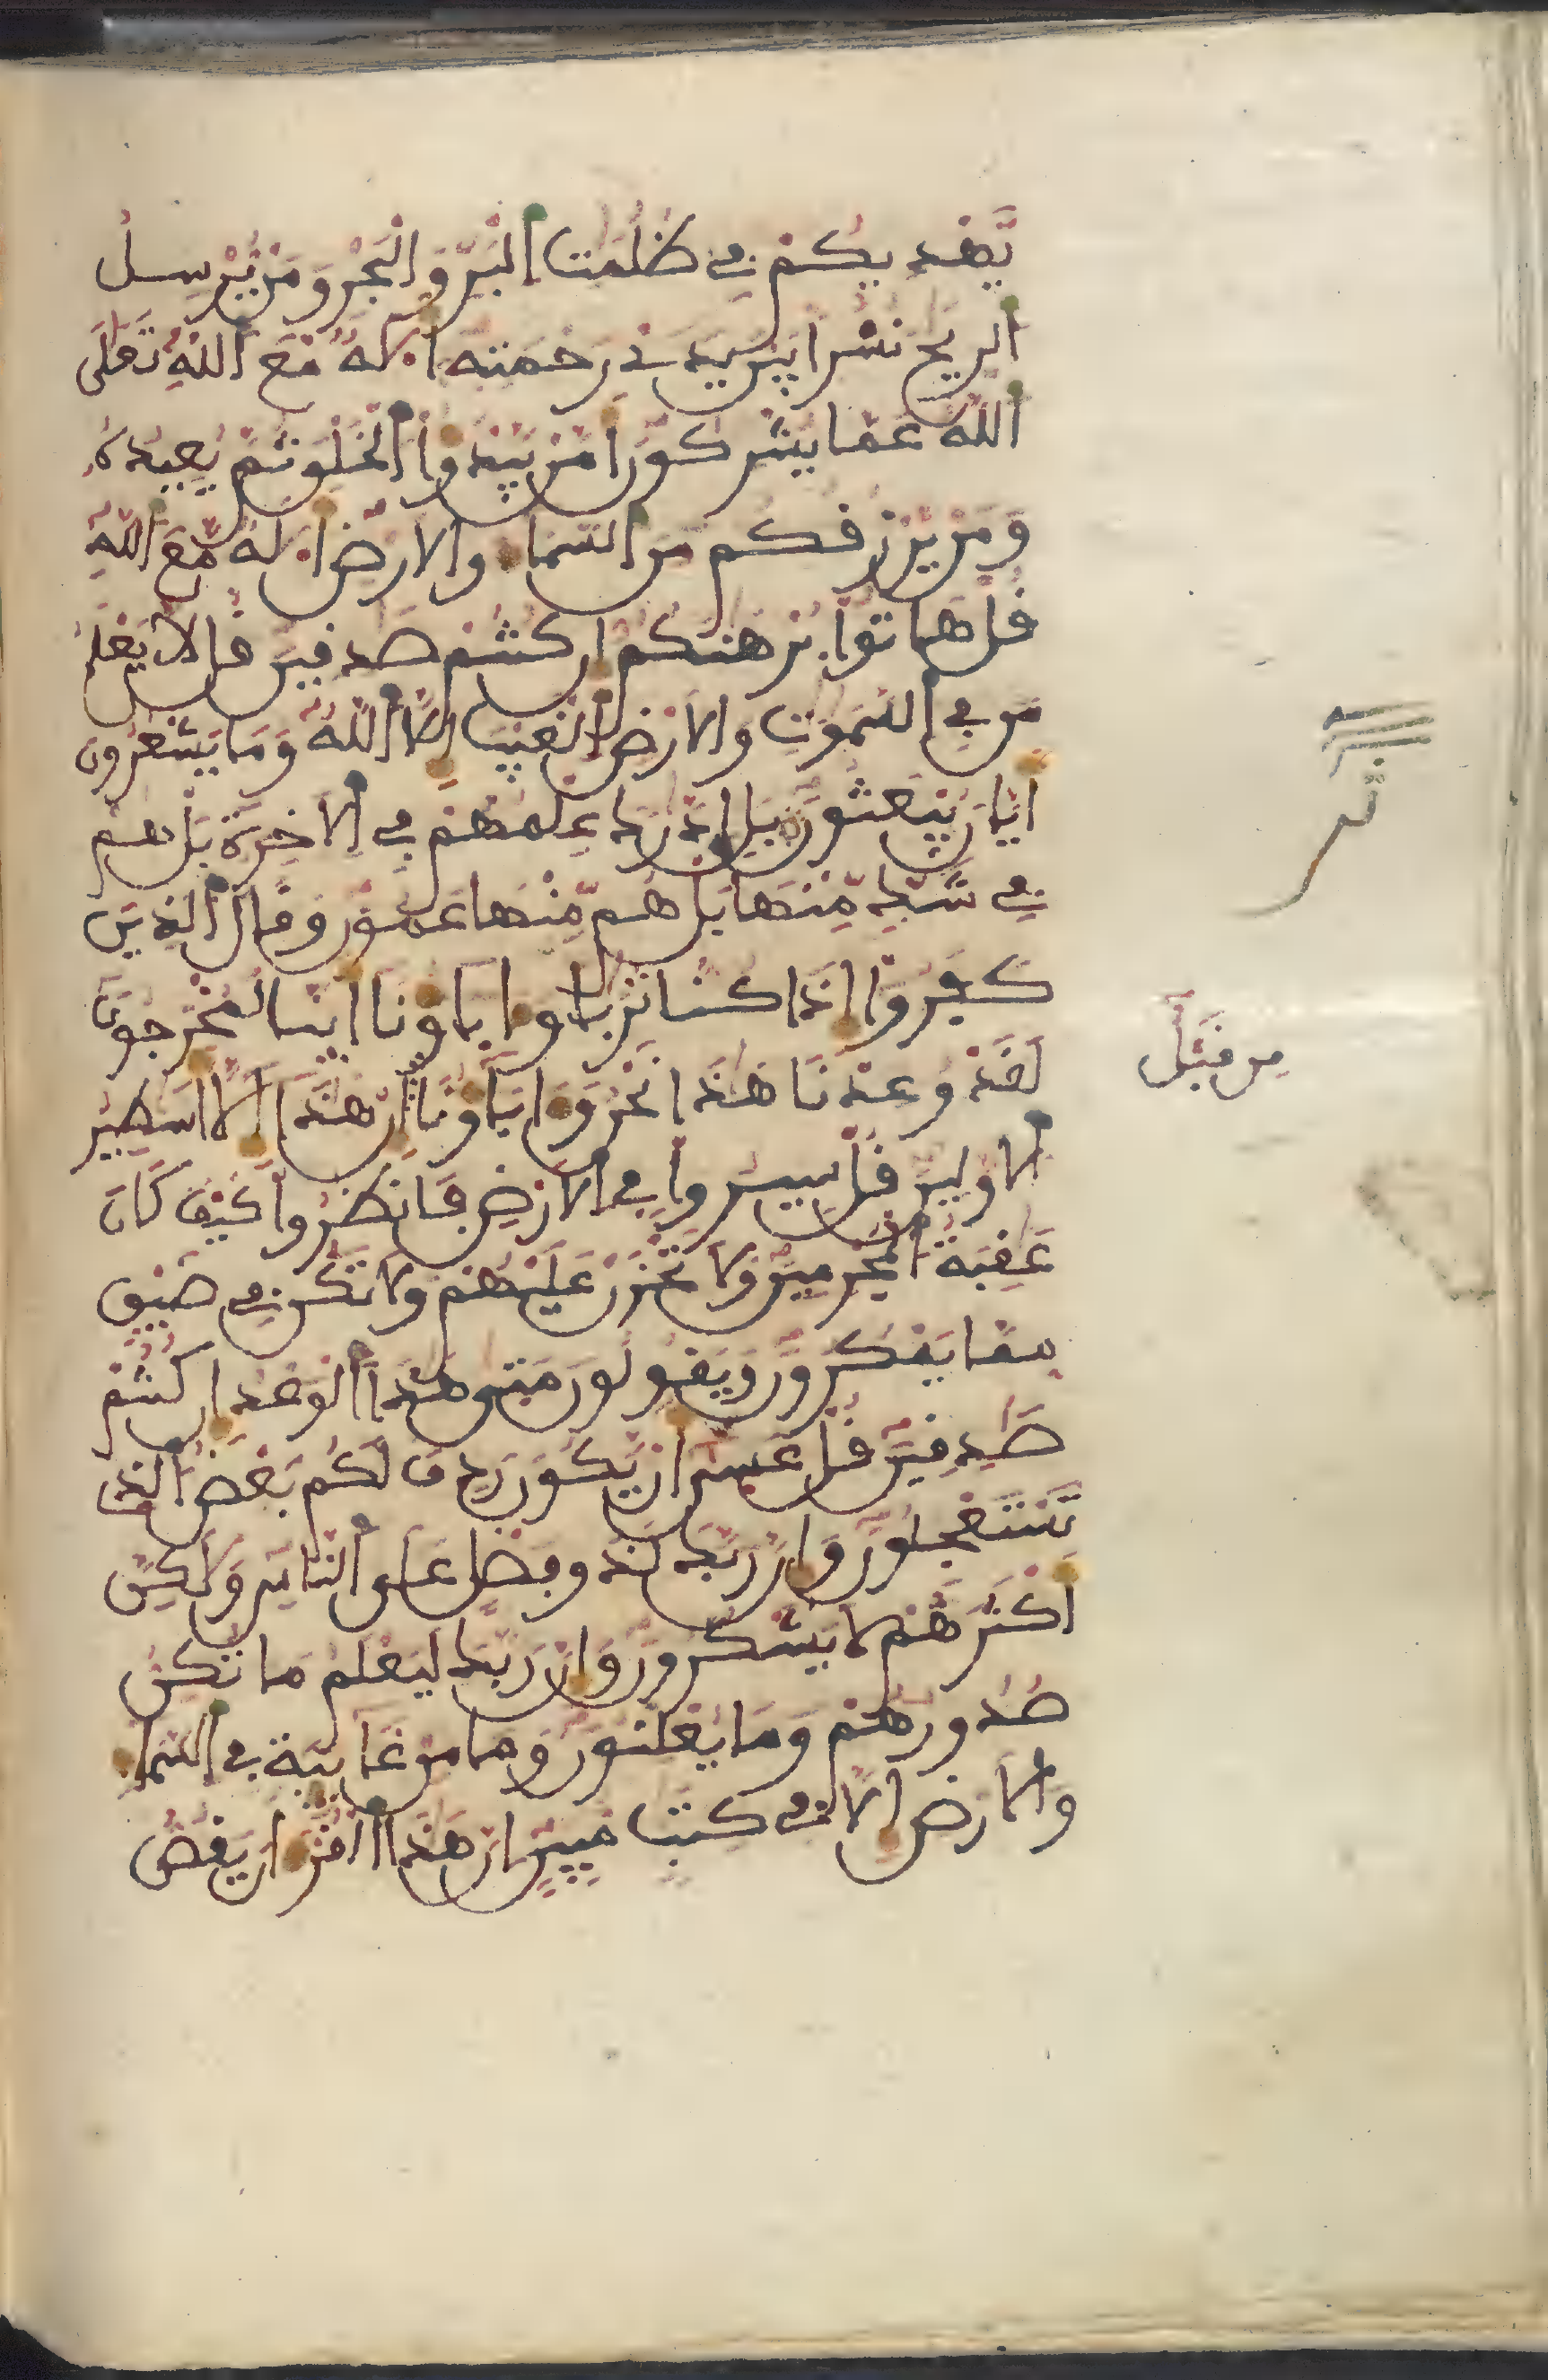 يَّهْدِيكُمْ فِي ظُلُمَٰتِ اِ۬لْبَرِّ وَالْبَحْرِ وَمَنْ يُّرْسِلُ
اُ۬لرِّيَٰحَ نُشُراَۢ بَيْنَ يَدَےْ رَحْمَتِهِ أَ۟لَٰهٞ مَّعَ اَ۬للَّهِ تَعَٰلَى
اَ۬للَّهُ عَمَّا يُشْرِكُونَ أَمَّنْ يَّبْدَؤُاْ اُ۬لْخَلْقَ ثُمَّ يُعِيدُهُۥ
وَمَنْ يَّرْزُقُكُم مِّنَ اَ۬لسَّمَآءِ وَالَارْضِ أَ۟لَٰهٞ مَّعَ اَ۬للَّهِ
قُلْ هَاتُواْ بُرْهَٰنَكُمُۥٓ إِن كُنتُمْ صَٰدِقِينَ قُل لَّا يَعْلَمُ
مَن فِي اِ۬لسَّمَٰوَٰتِ وَالَارْضِ اِ۬لْغَيْبَ إِلَّا اَ۬للَّهُ وَمَا يَشْعُرُونَ
أَيَّانَ يُبْعَثُونَ بَلِ اِ۪دَّٰرَكَ عِلْمُهُمْ فِي اِ۬لَاخِرَةِ بَلْ هُمْ
فِي شَكّٖ مِّنْهَا بَلْ هُم مِّنْهَا عَمُونَ وَقَالَ اَ۬لذِينَ
كَفَرُوٓاْ إِذَا كُنَّا تُرَٰباٗ وَءَابَآؤُنَآ أَئِنَّا لَمُخْرَجُونَ
لَقَدْ وُعِدْنَا هَٰذَا نَحْنُ وَءَابَآؤُنَا إِنْ هَٰذَآ إِلَّآ أَسَٰطِيرُ
مِن قَبْلُ
اُ۬لَاوَّلِينَ قُلْ سِيرُواْ فِي اِ۬لَارْضِ فَانظُرُواْ كَيْفَ كَانَ
عَٰقِبَةُ اُ۬لْمُجْرِمِينَ وَلَا تَحْزَنْ عَلَيْهِمْ وَلَا تَكُن فِي ضَيْقٖ
مِّمَّا يَمْكُرُونَ وَيَقُولُونَ مَتَىٰ هَٰذَا اَ۬لْوَعْدُ إِن كُنتُمْ
صَٰدِقِينَ قُلْ عَسَىٰٓ أَنْ يَّكُونَ رَدِفَ لَكُم بَعْضُ اُ۬لذِے
تَسْتَعْجِلُونَ وَإِنَّ رَبَّكَ لَذُو فَضْلٍ عَلَى اَ۬لنَّاسِ وَلَٰكِنَّ
أَكْثَرَهُمْ لَا يَشْكُرُونَ وَإِنَّ رَبَّكَ لَيَعْلَمُ مَا تُكِنُّ
صُدُورُهُمْ وَمَا يُعْلِنُونَ وَمَا مِنْ غَآئِبَةٖ فِي اِ۬لسَّمَآءِ
وَالَارْضِ إِلَّا فِي كِتَٰبٖ مُّبِينٍ إِنَّ هَٰذَا اَ۬لْقُرْءَانَ يَقُصُّ